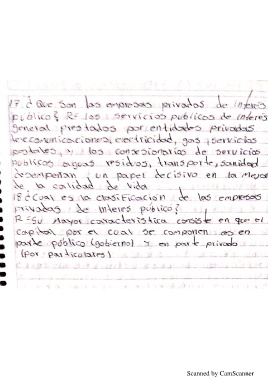 17 ¿Que son las empresas privadas de interes
publico? R= los servicios publicos de interés
general prestados por entidades privadas
telecomunicaciones, electricidad, gas, servicios
postales, y los concesionarios de servicios
publicos aguas residos, transporte, sanidad
desempeñan un papel decisivo en la mejora
de la calidad de vida
18 ¿Cual es la clasificación de las empresas
privadas de interes público?
R= Su mayor caracteristica consiste en que el
capital por el cual se componen es en
parte público (gobierno) y en parte privado
(Por particulares)
Scanned by CamScanner